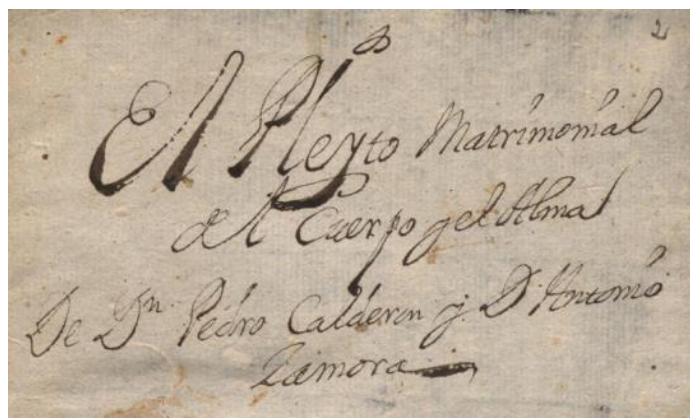 2
El Pleyto Matrimonial
del Cuerpo y el Alma
De Dn Pedro Calderon y D. Antonio
Zamora